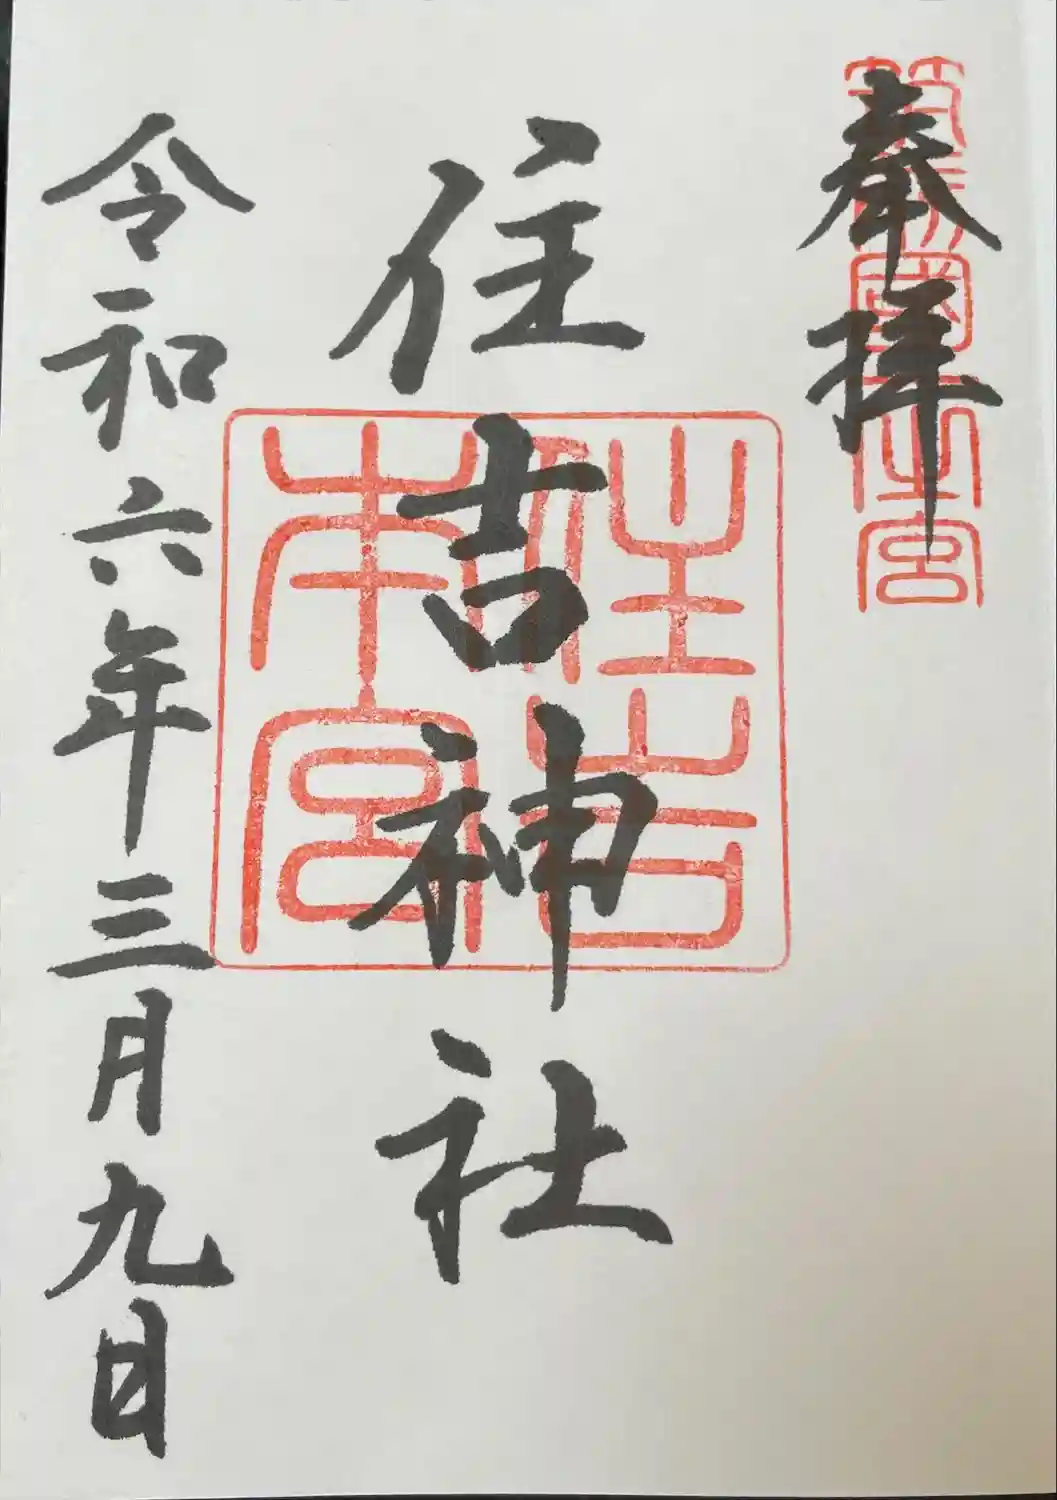 奉拝
筑前國一之宮
住吉神社
住吉
本宮
令和六年三月九日